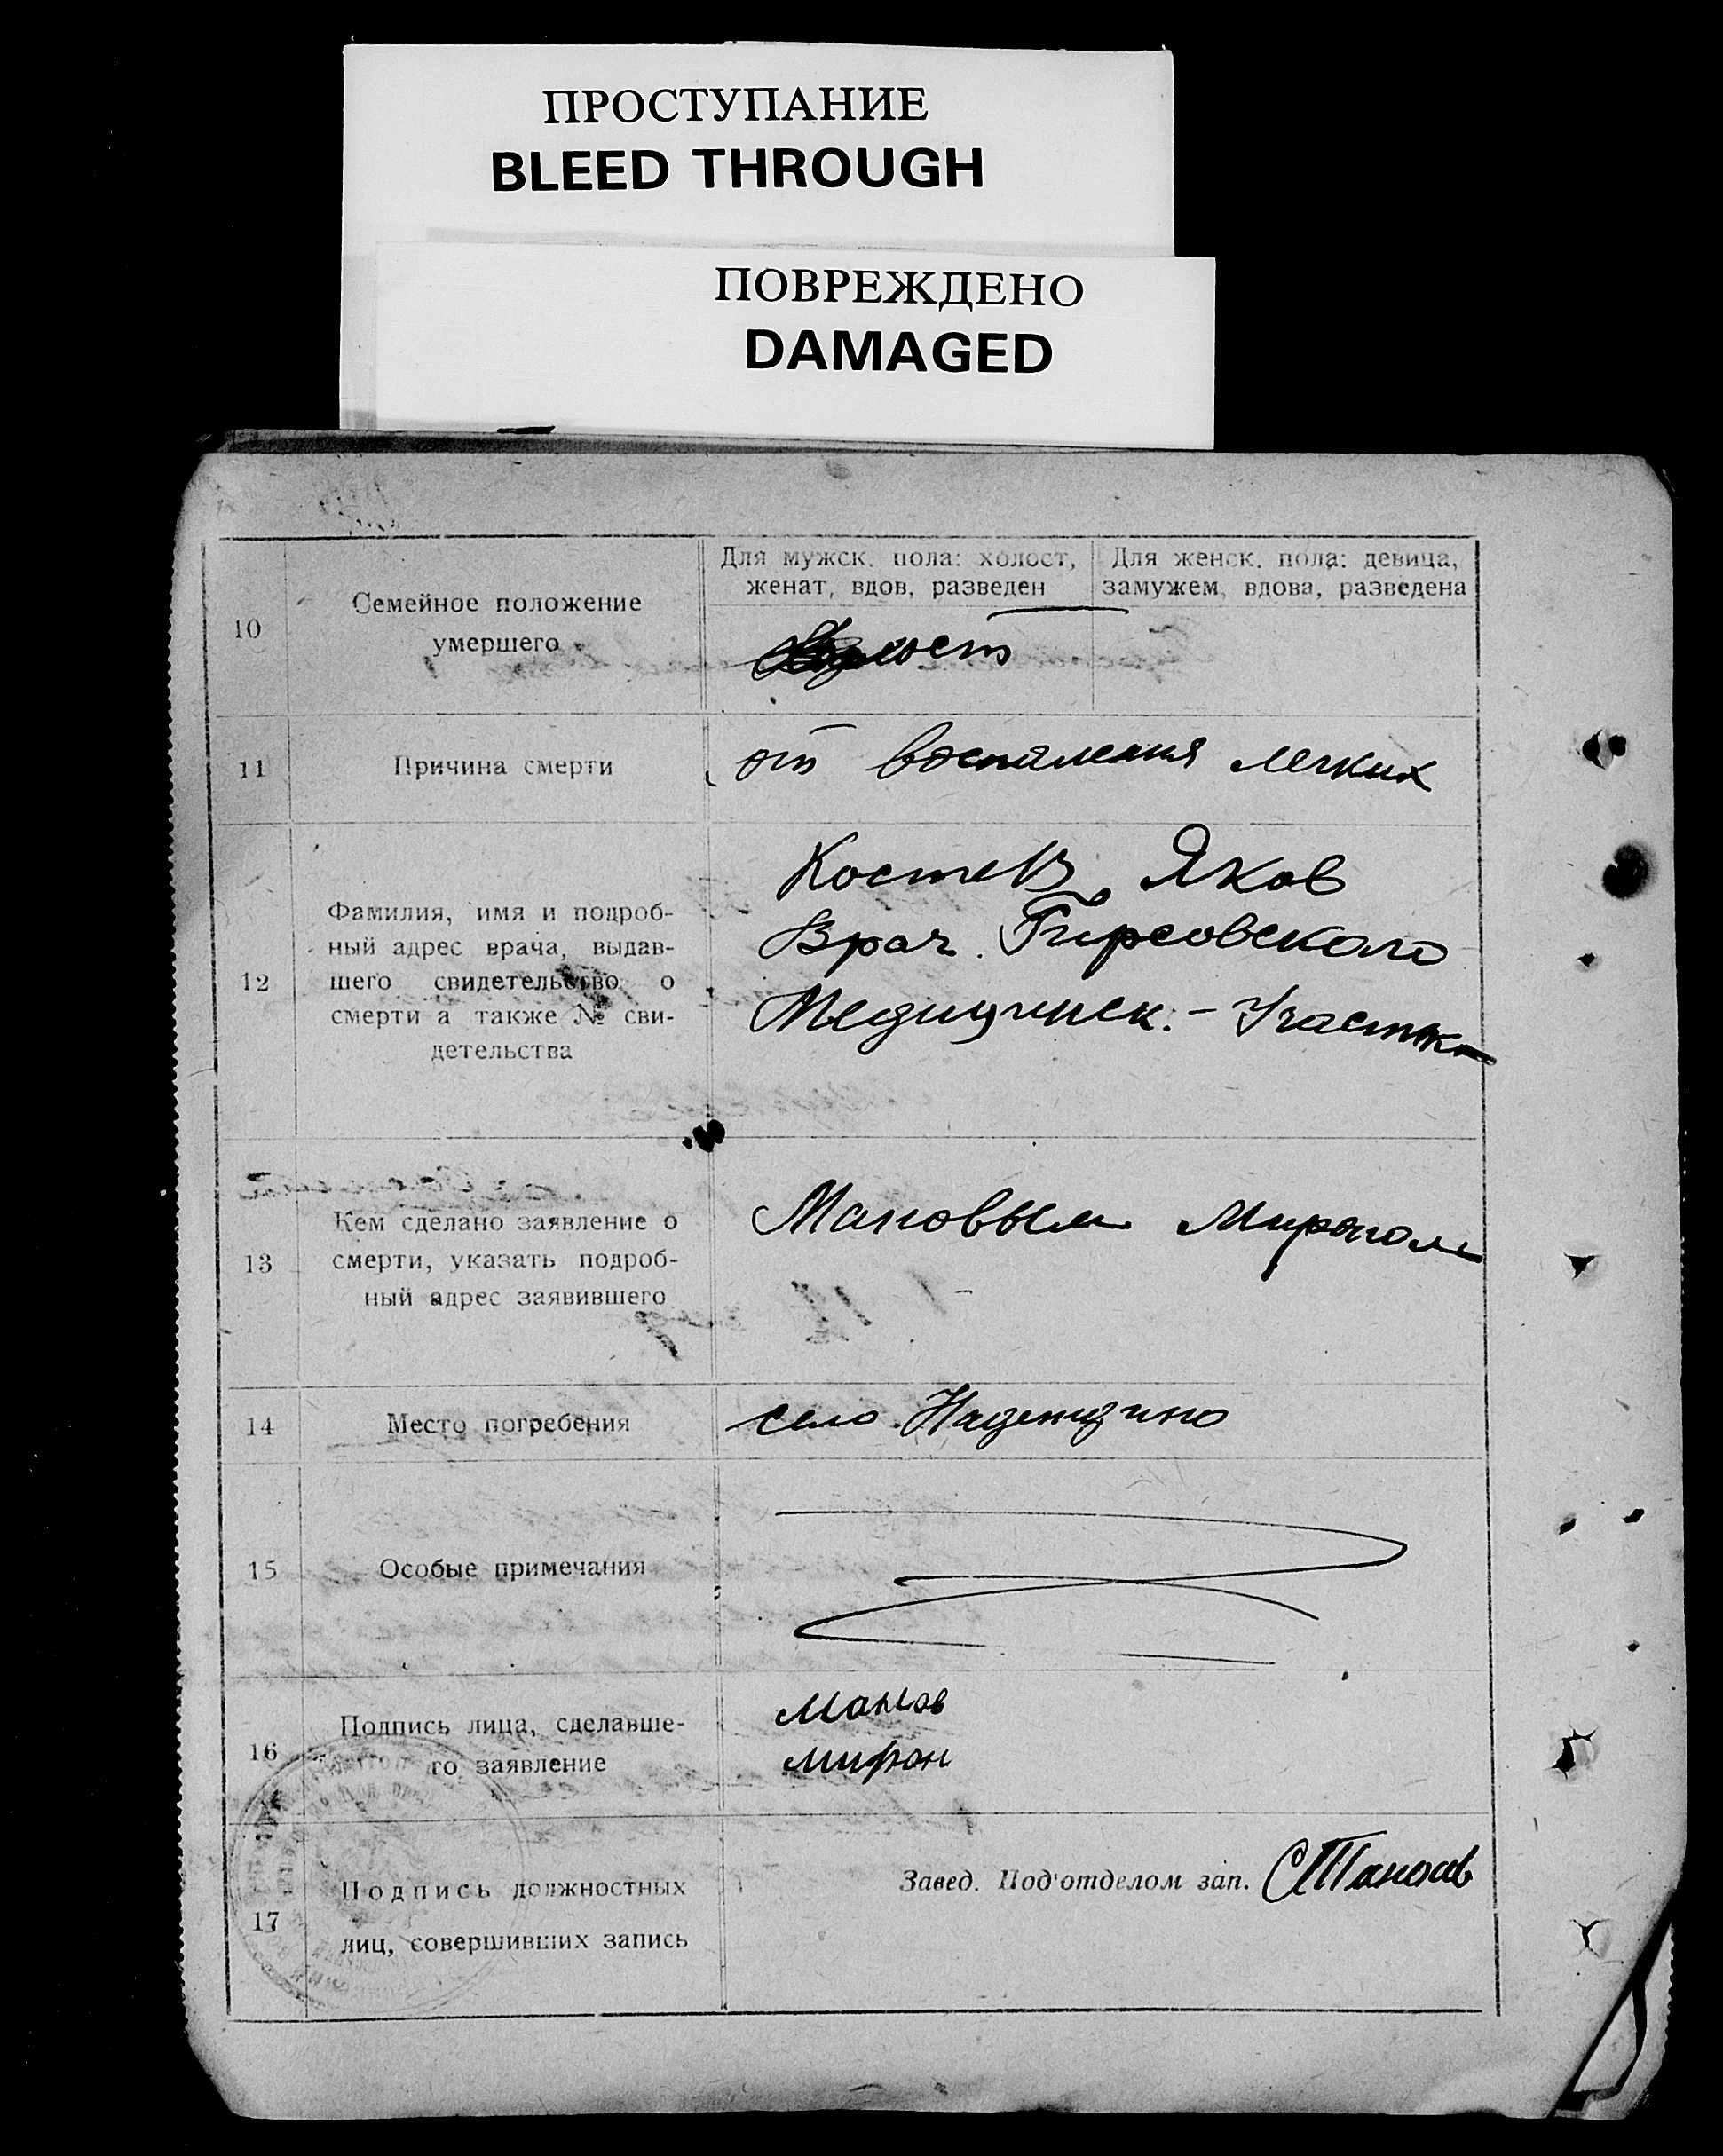 ПРОСТУПАНИЕ
BLEED THROUGH
ПОВРЕЖДЕНО
DAMAGED
Для мужск. пола: холост,
женат, вдов, разведен
Для женск. пола: девица,
замужем, вдова, разведена
10
Семейное положение
умершего
11
Причина смерти
от воспаления легких
12
Фамилия, имя и подроб-
ный адрес врача, выдав-
шего свидетельство о
смерти а также № сви-
детельства
Яков
Врач
Медицинск. - Участка
13
Кем сделано заявление о
смерти, указать подроб-
ный адрес заявившего
Мановым Мироном
14
Место погребения
село Надеждино
15
Особые примечания
16
Подпись лица, сделавше-
го заявление
Манов
Мирон
17
Подпись должностных
лиц, совершивших запись
Завед. Под'отделом зап.